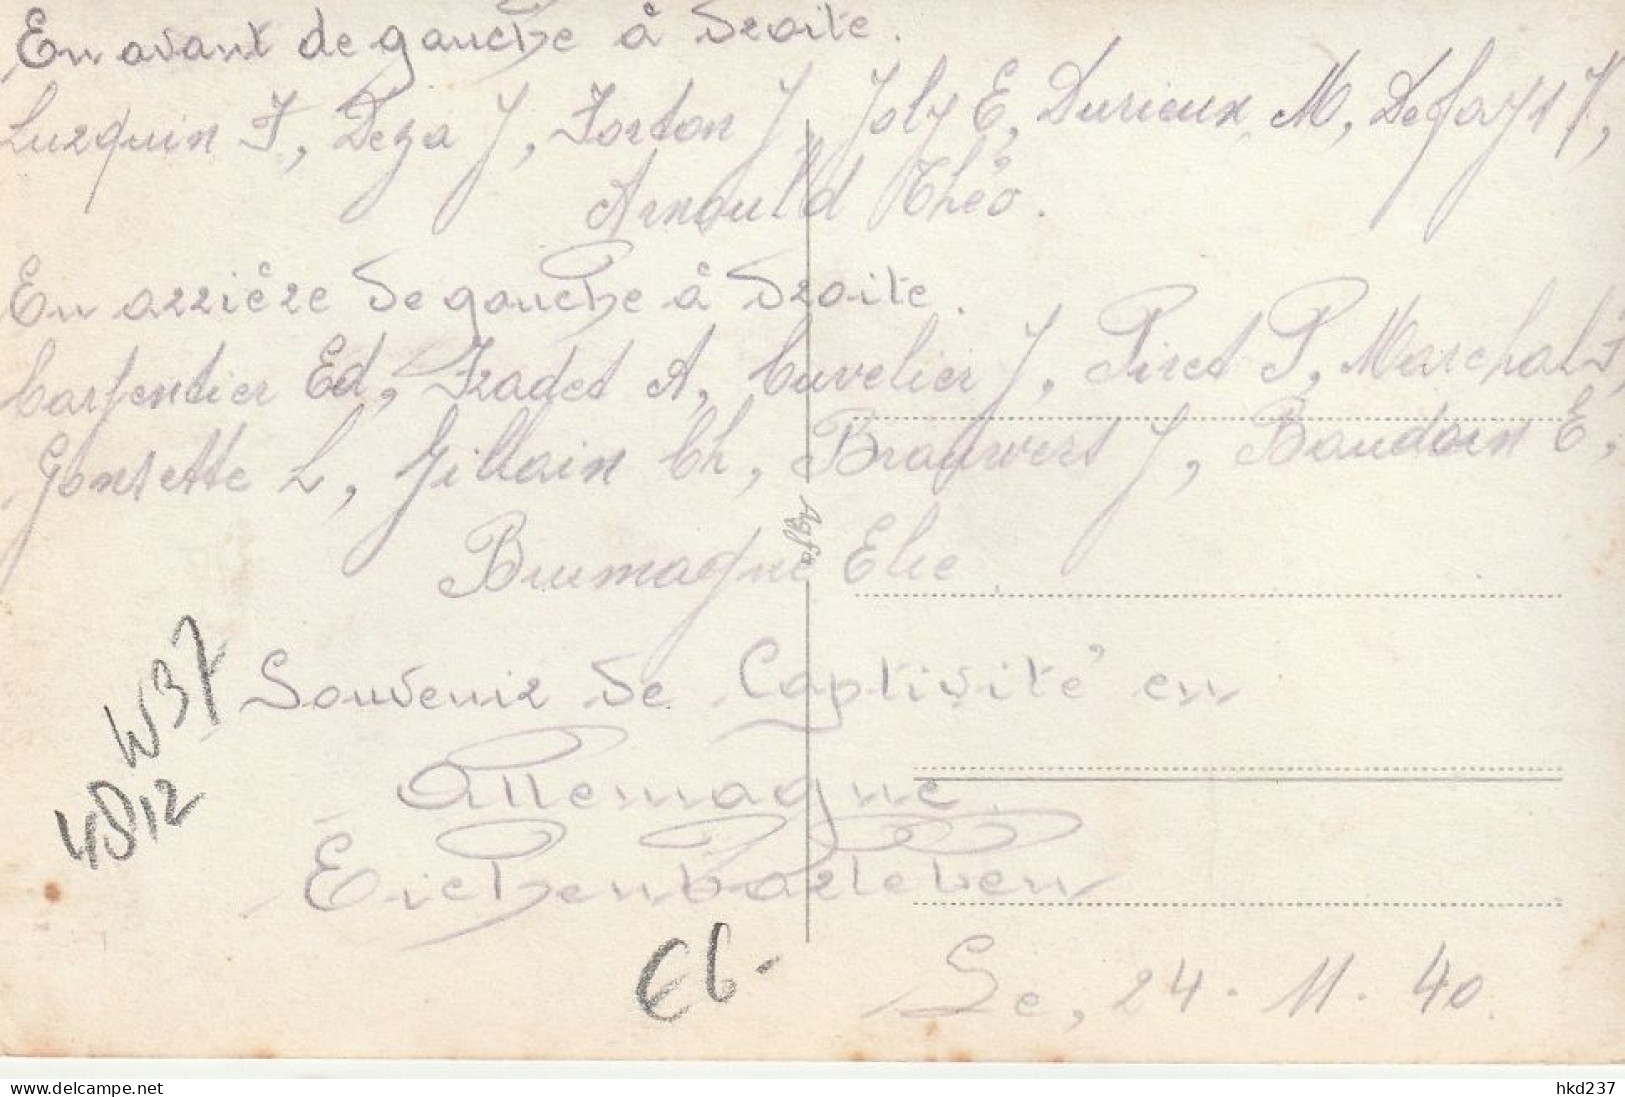 En avant de gauche à droite.
Luzquin F, Deza J, Forton J, Joly E, Durieux M, Defays V,
Arnould Théo.
En arrière de gauche à droite.
Carpentier Ed, Fradet A, Cuvelier J, Piret P, Marchal F,
Gonsette L, Gillain Ch, Brauwers J, Baudoin E,
Brumagne Elie.
Souvenir de Captivité en
Allemagne.
Eichenbarleben
Le, 24.11.40.
W37
4812
€6-
www.delcampe.net
hkd237